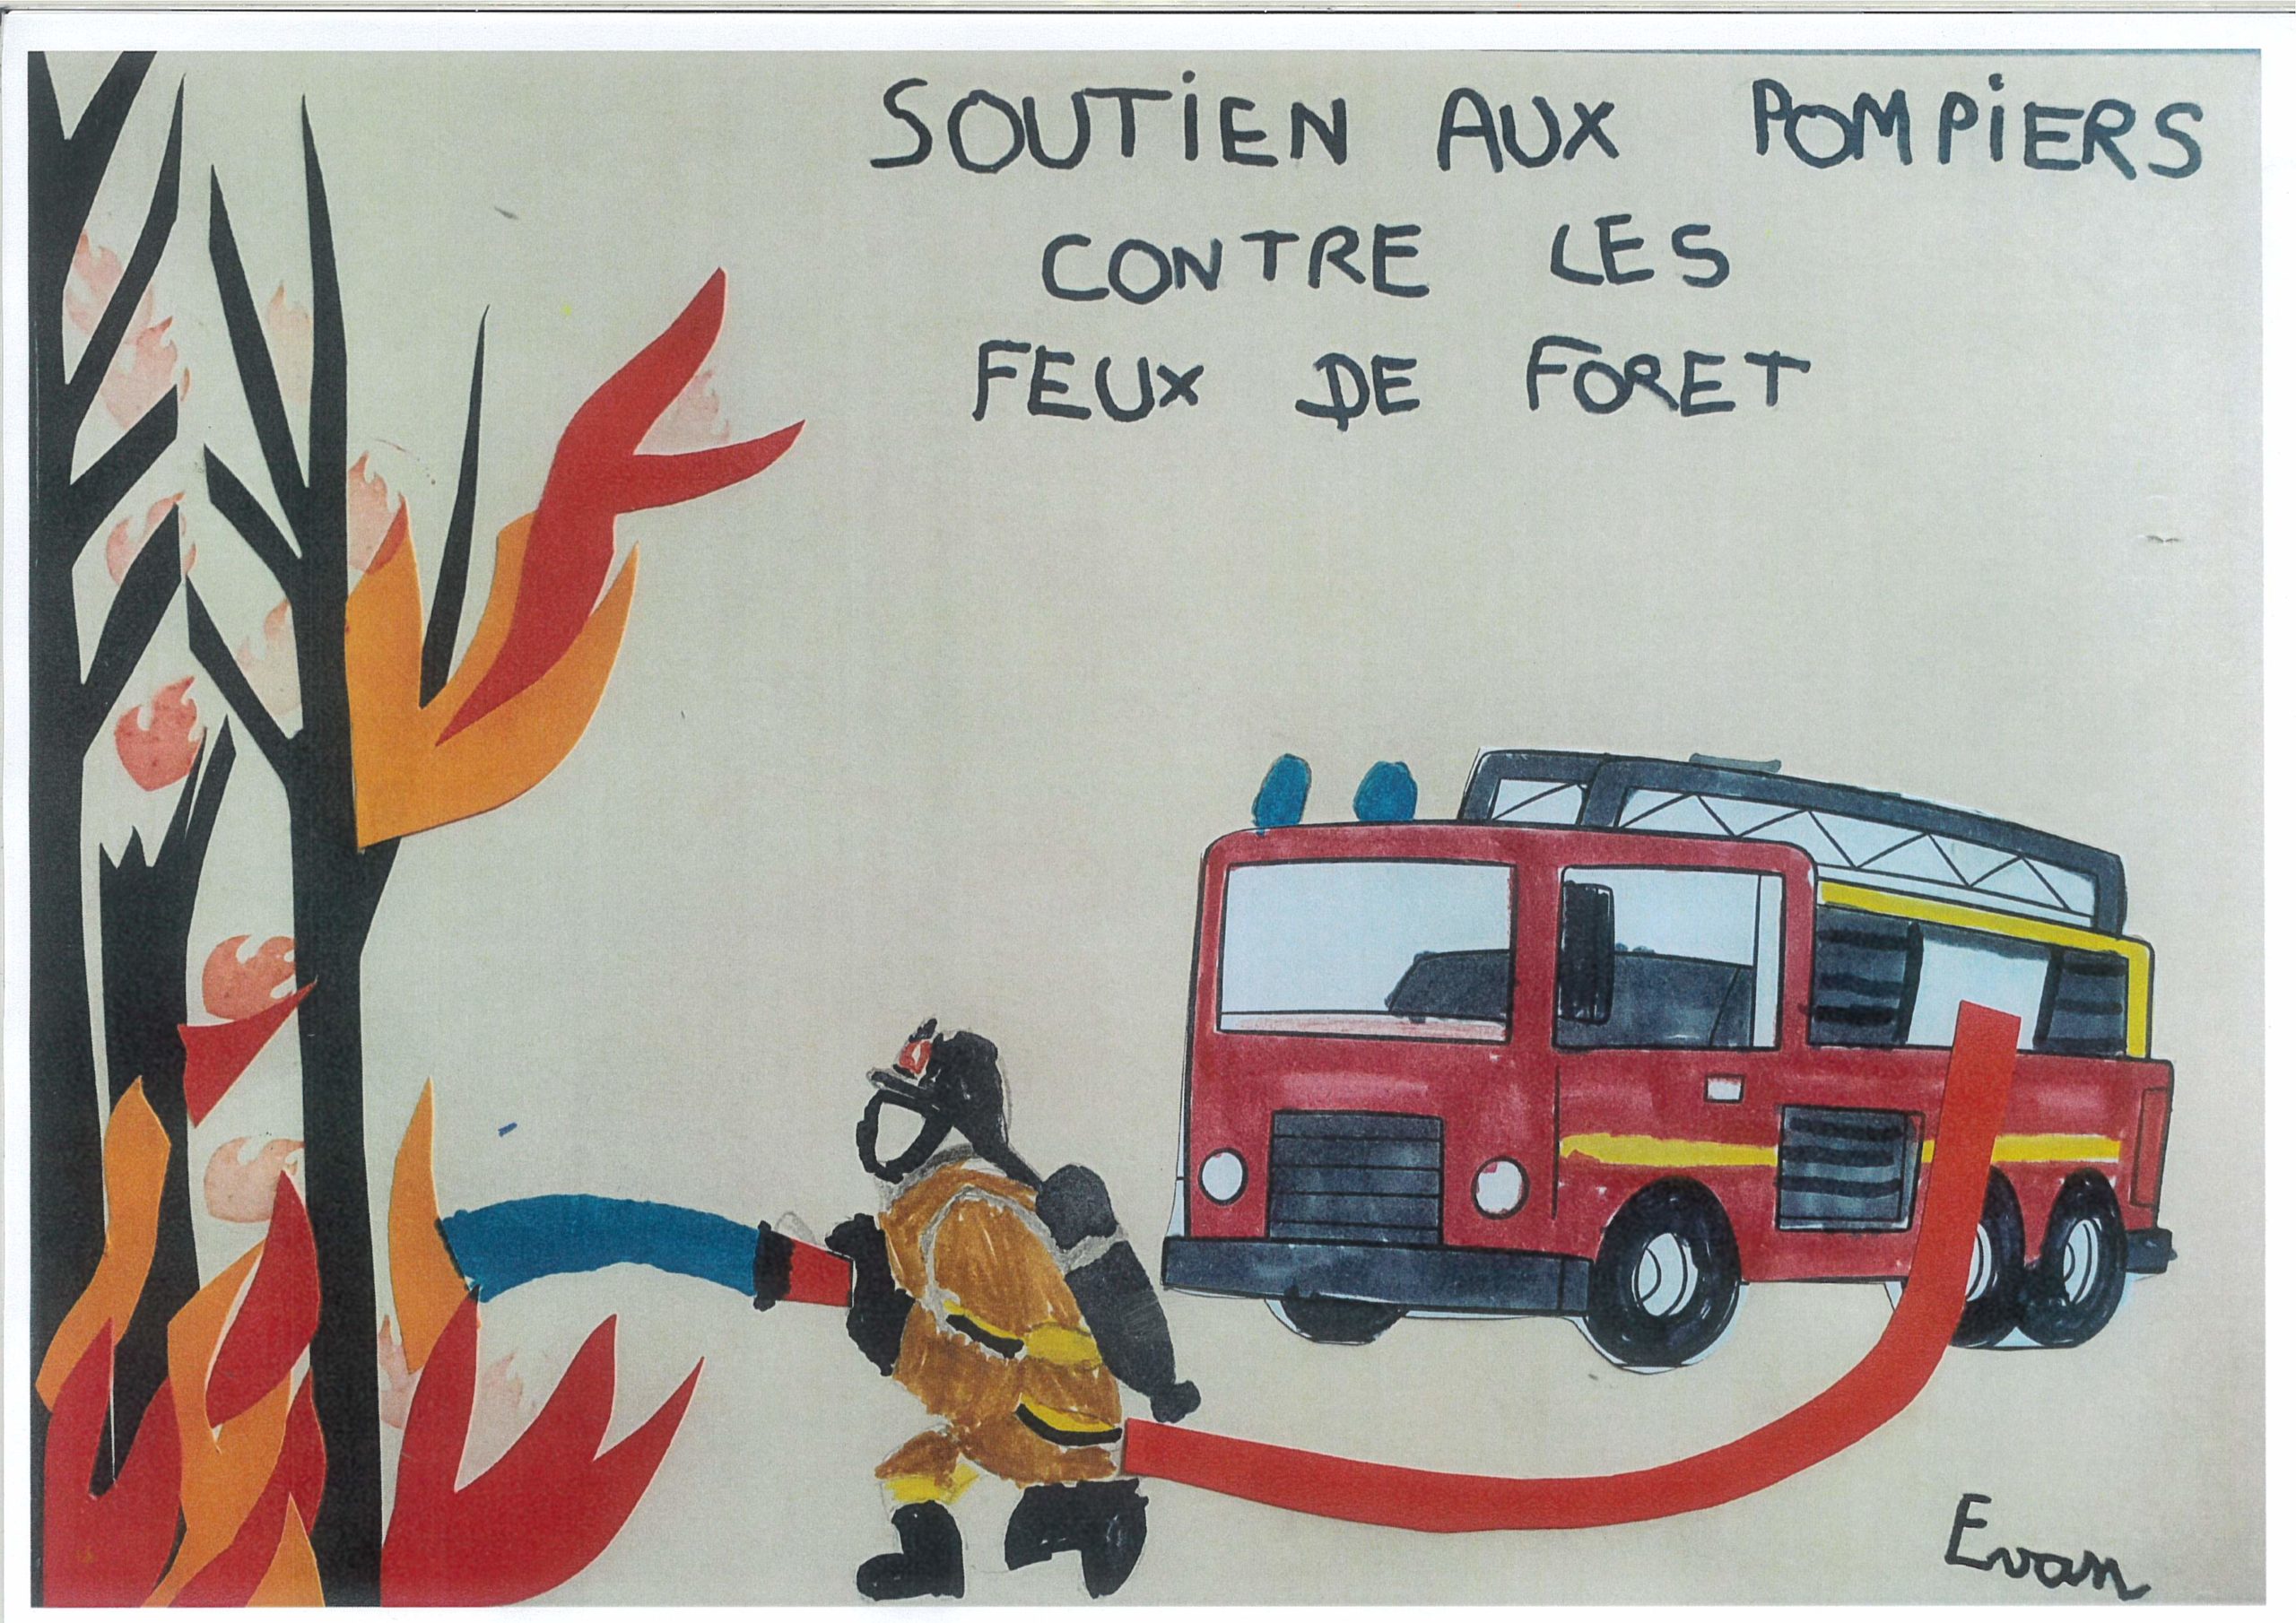 SOUTIEN AUX POMPIERS
CONTRE LES
FEUX DE FORET
Evan